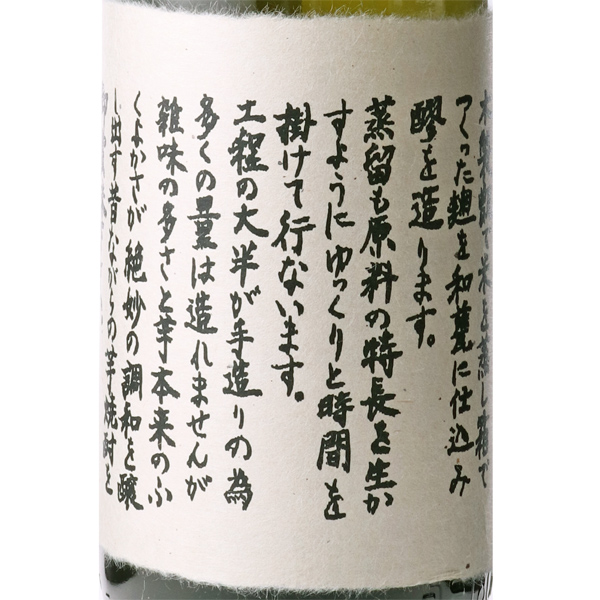 で米を蒸し箱で
つくった麹を和甕に仕込み
醪を造ります。
蒸留も原料の特長を生か
すようにゆっくりと時間を
掛けて行ないます。
工程の大半が手造りの為
多くの量は造れませんが
雑味の多さと芋本来のふ
くよかさが絶妙の調和を醸
し出す昔ながらの芋焼酎を